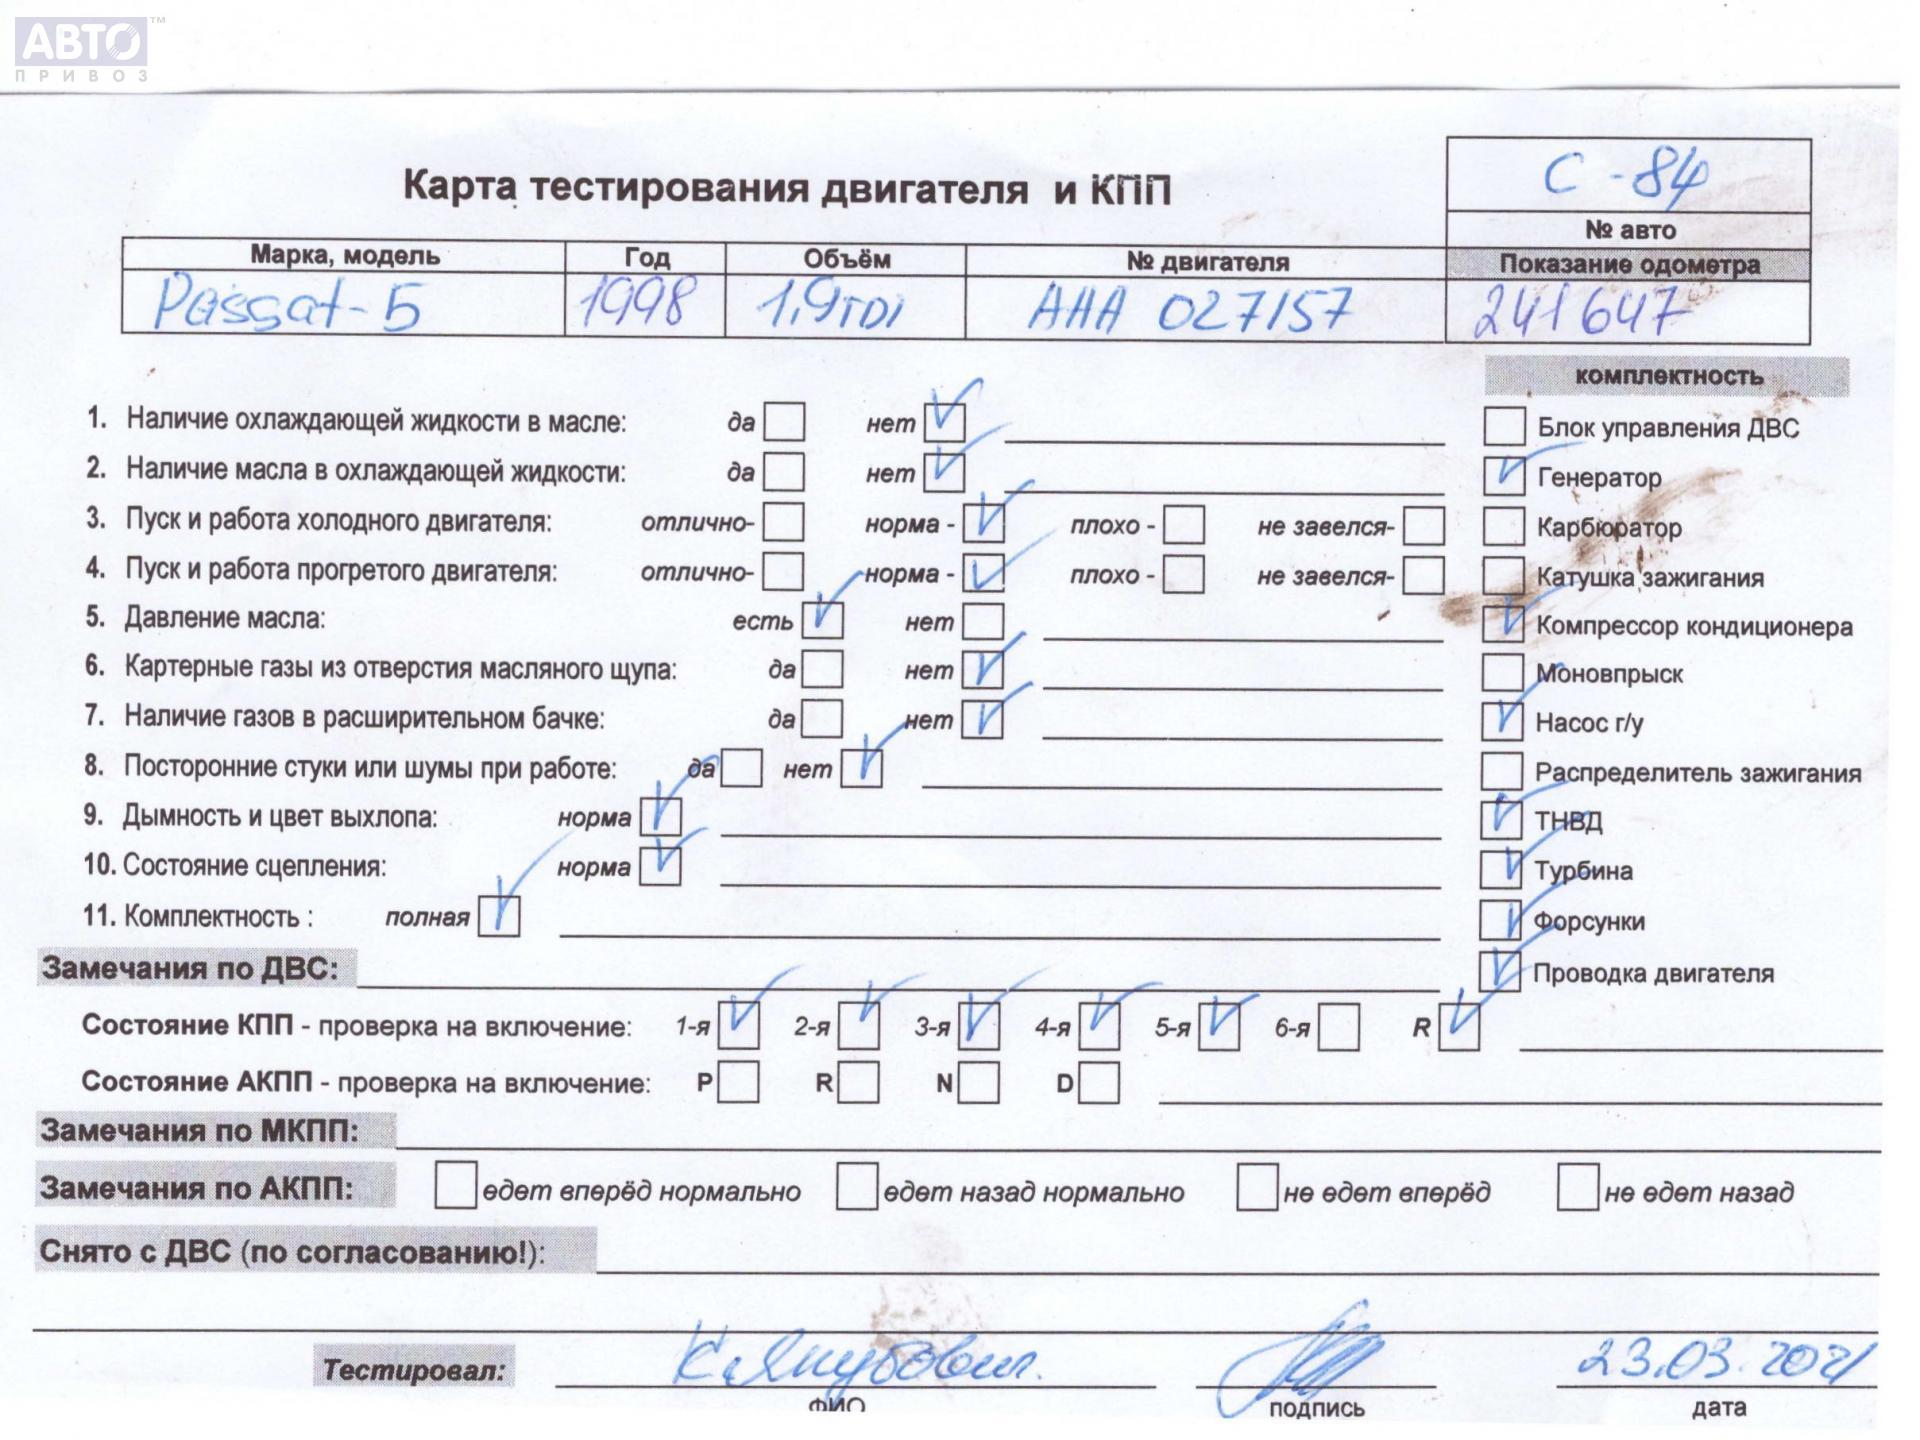 АВТО™
ПРИВОЗ
С-84
Карта тестирования двигателя и КПП
№ авто
Марка, модель Год Объём № двигателя Показание одометра
Passat-5 1998 1,9TDI АНА 027157 241647
комплектность
1. Наличие охлаждающей жидкости в масле: да нет ✓ Блок управления ДВС
2. Наличие масла в охлаждающей жидкости: да нет ✓ ✓ Генератор
3. Пуск и работа холодного двигателя: отлично- норма - ✓ плохо - не завелся- Карбюратор
4. Пуск и работа прогретого двигателя: отлично- норма - ✓ плохо - не завелся- Катушка зажигания
5. Давление масла: есть ✓ нет ✓ Компрессор кондиционера
6. Картерные газы из отверстия масляного щупа: да нет ✓ Моновпрыск
7. Наличие газов в расширительном бачке: да нет ✓ ✓ Насос г/у
8. Посторонние стуки или шумы при работе: да нет ✓ Распределитель зажигания
9. Дымность и цвет выхлопа: норма ✓ ✓ ТНВД
10. Состояние сцепления: норма ✓ ✓ Турбина
11. Комплектность : полная ✓ ✓ Форсунки
Замечания по ДВС: ✓ Проводка двигателя
Состояние КПП - проверка на включение: 1-я ✓ 2-я ✓ 3-я ✓ 4-я ✓ 5-я ✓ 6-я R ✓
Состояние АКПП - проверка на включение: P R N D
Замечания по МКПП:
Замечания по АКПП: едет вперёд нормально едет назад нормально не едет вперёд не едет назад
Снято с ДВС (по согласованию!):
Тестировал: 23.03.2021
ФИО подпись дата